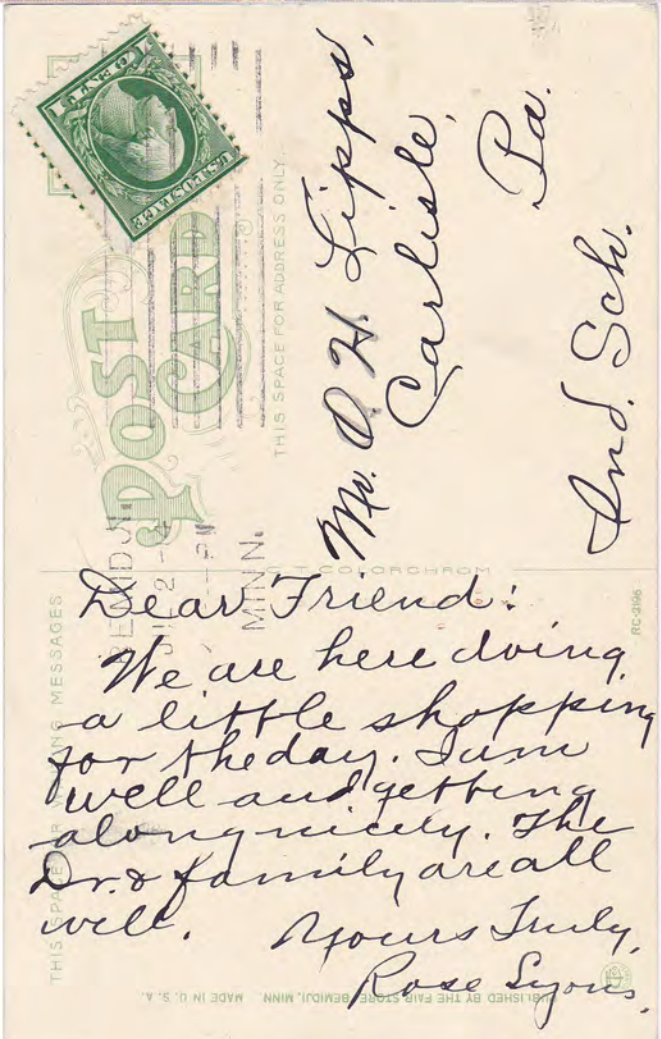 U.S. POSTAGE
1 CENT 1
POST CARD
THIS SPACE FOR ADDRESS ONLY.
BEMIDJI.
MINN.
Mr. O. H. Lipps,
Carlisle,
Pa.
Ind. Sch.
C. T. COLORCHROM
RC-2196
THIS SPACE FOR WRITING MESSAGES
Dear Friend:
We are here doing
a little shopping
for the day. I am
well and getting
along nicely. The
Dr. & family are all
well.
Yours Truly,
Rose Lyons.
PUBLISHED BY THE FAIR STORE, BEMIDJI, MINN. MADE IN U. S. A.